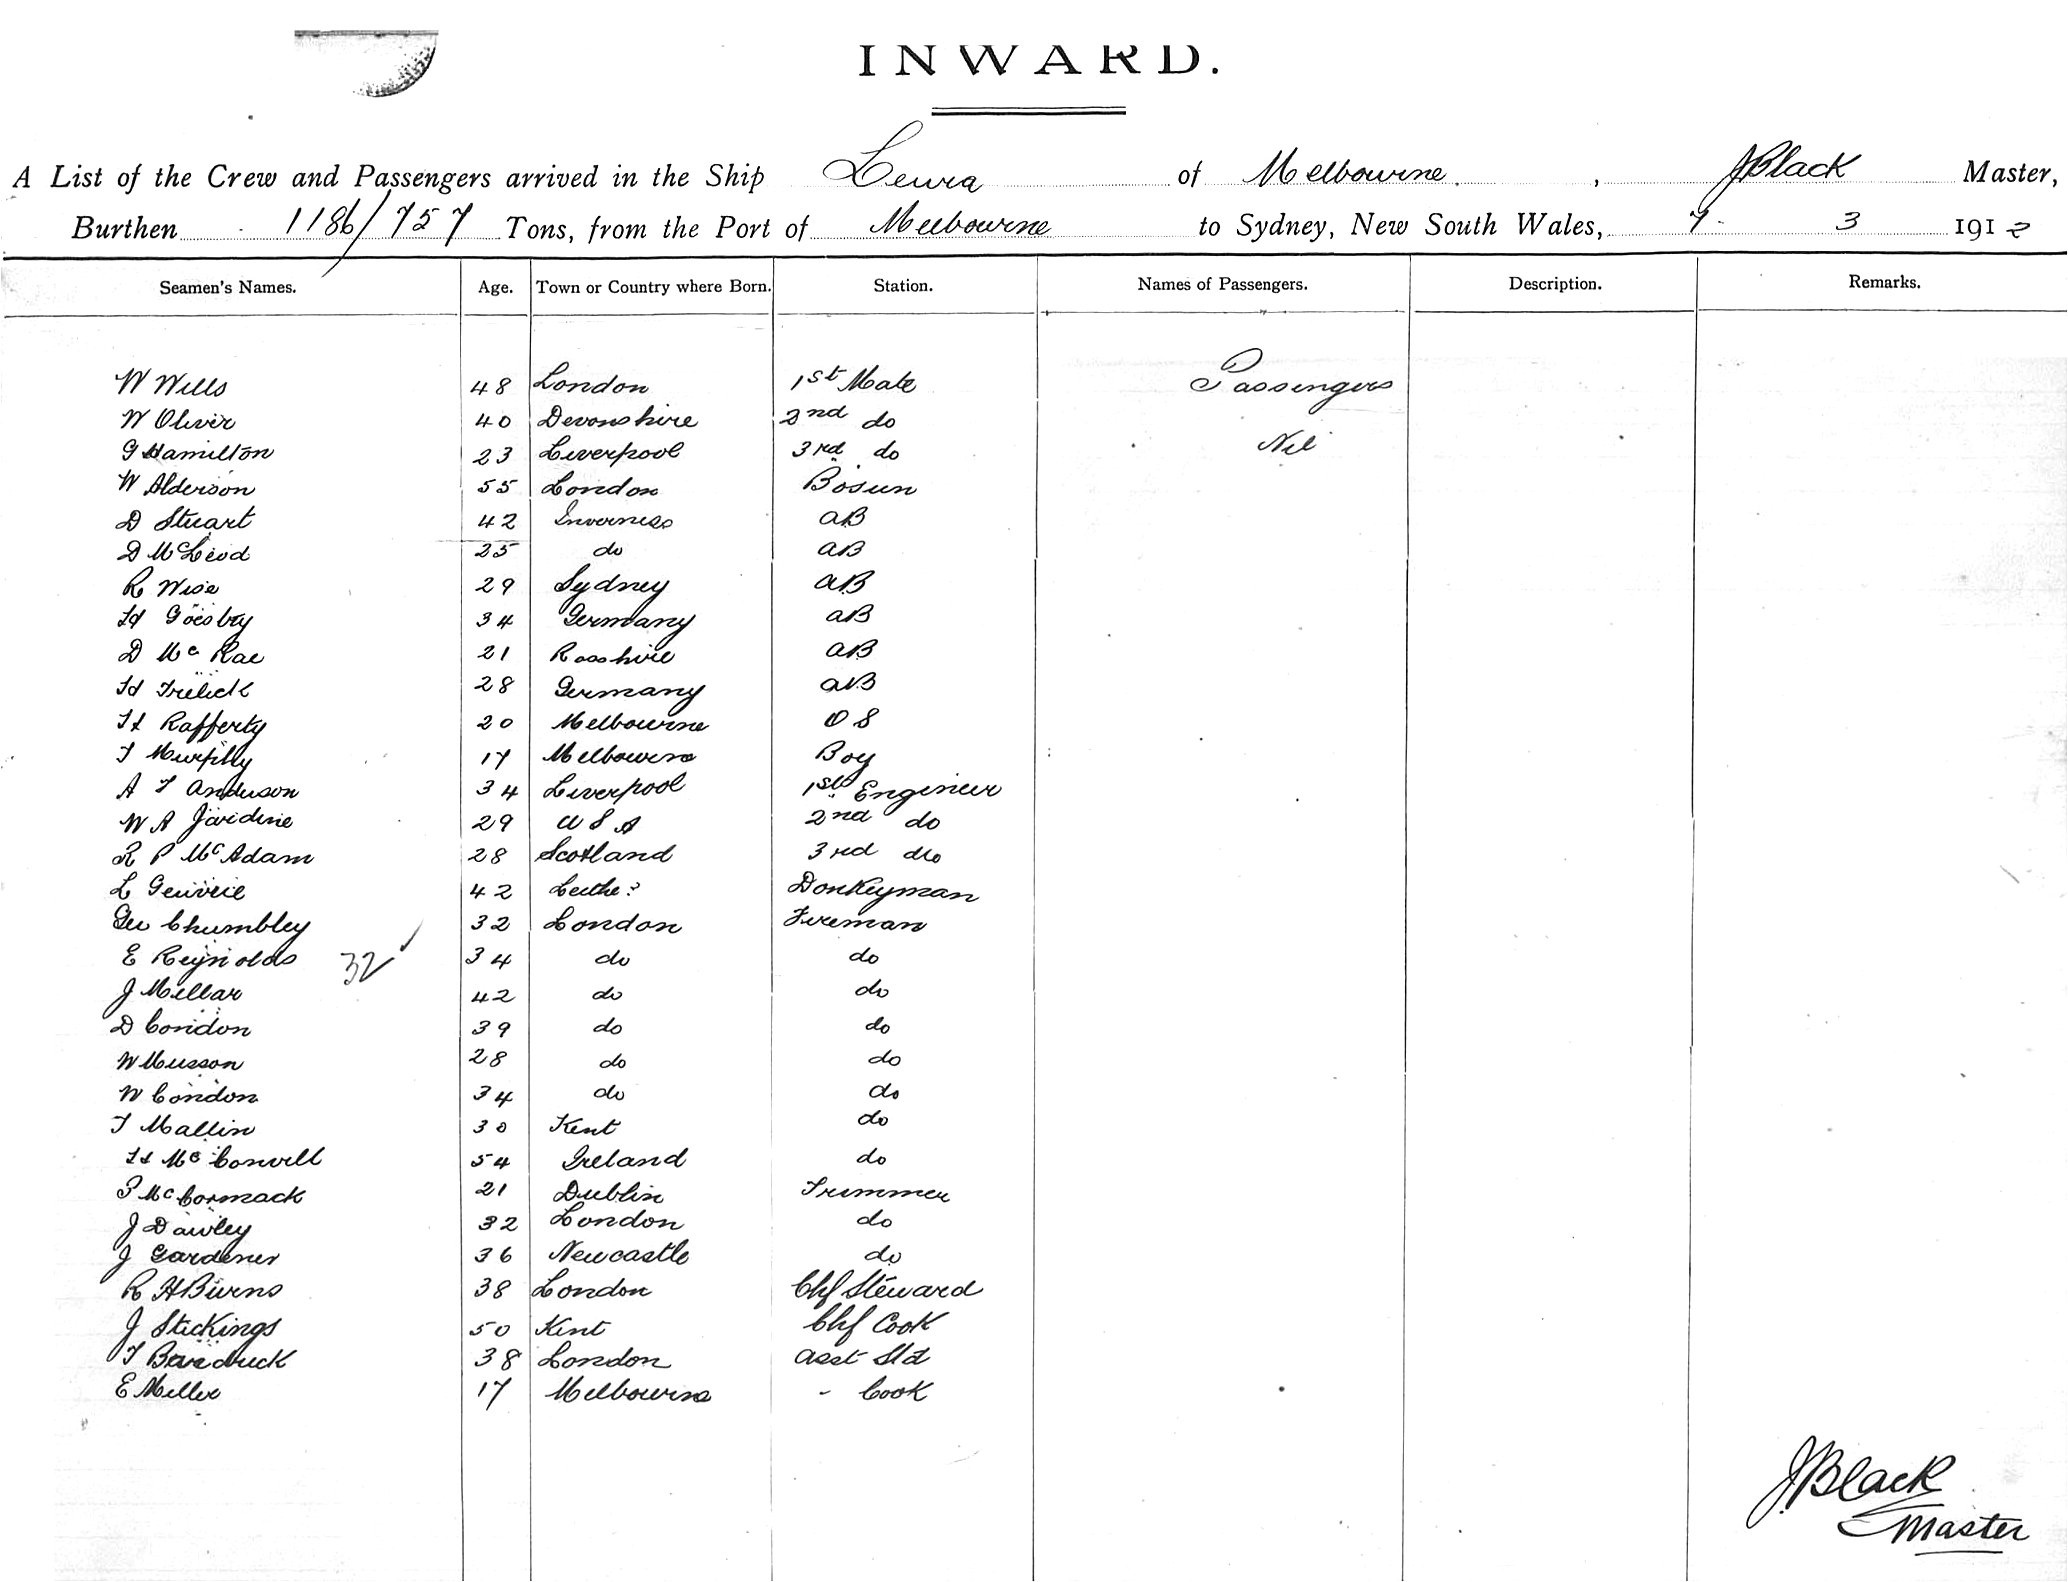 INWARD.
A List of the Crew and Passengers arrived in the Ship Leura of Melbourne. , J Black Master,
Burthen 1186/757 Tons, from the Port of Melbourne to Sydney, New South Wales, 7 - 3 1912
Seamen's Names. Age. Town or Country where Born. Station. Names of Passengers. Description. Remarks.
W Wills 48 London 1st Mate Passengers
W Oliver 40 Devonshire 2nd do
G Hamilton 23 Liverpool 3rd do Nil
W Alderson 55 London Bosun
D Stuart 42 Inverness AB
D McLeod 25 do AB
R Wise 29 Sydney AB
Hy 34 Germany AB
D McRae 21 Rosshire AB
Hy 28 Germany AB
Hy Rafferty 20 Melbourne OS
T Murphy 17 Melbourne Boy
A T Anderson 34 Liverpool 1st Engineer
W A Jardine 29 USA 2nd do
R P McAdam 28 Scotland 3rd do
L 42 Donkeyman
Geo Chumbley 32 London Fireman
E Reynolds 32 34 do do
J Millar 42 do do
D Condon 39 do do
W Musson 28 do do
W Condon 34 do do
T Mallin 30 Kent do
Hy McConvill 54 Ireland do
P McCormack 21 Dublin Trimmer
J Dawley 32 London do
J Gardener 36 Newcastle do
R H Burns 38 London Chf Steward
J Stickings 50 Kent Chf Cook
T 38 London Asst Std
E Miller 17 Melbourne - Cook
J Black
Master